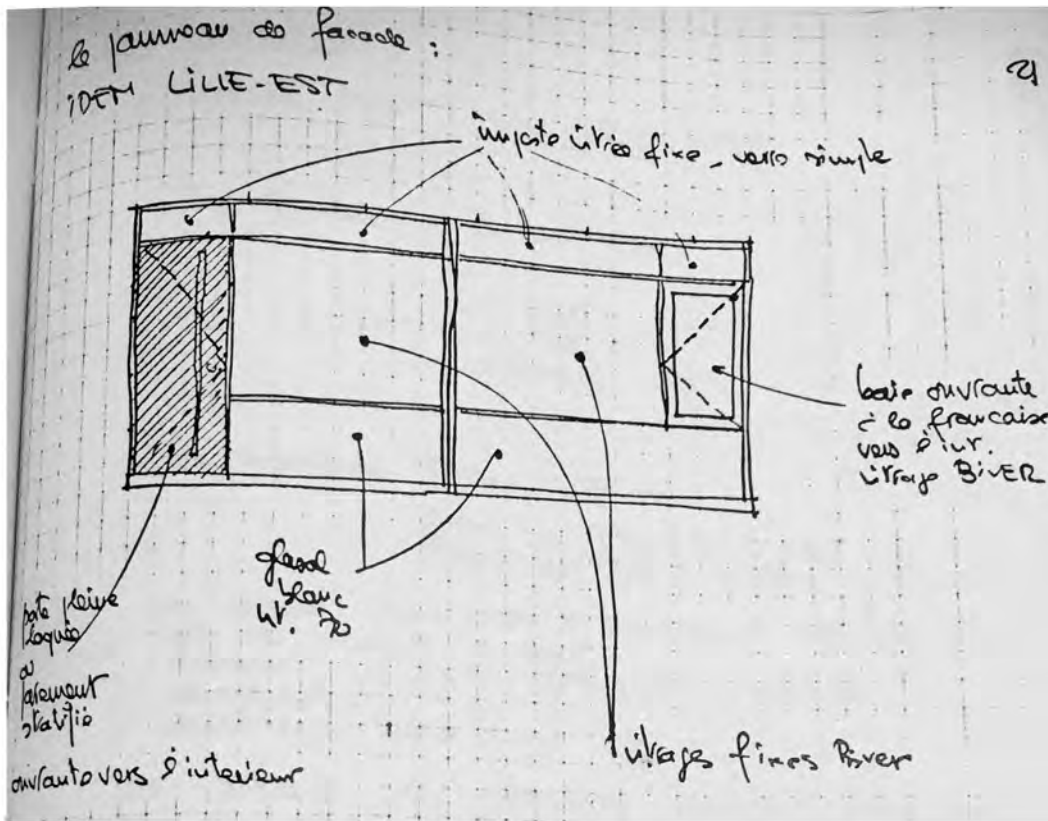 le panneau de facade :
IDEM LILLE-EST
21
imposte vitrée fixe _ verre simple
baie ouvrante
à la francaise
vers l'int.
vitrage BiVER
glasal
blanc
ht. 70
porte pleine
laquée
ou
parement
stratifié
ouvrante vers l'interieur
vitrages fixes Biver